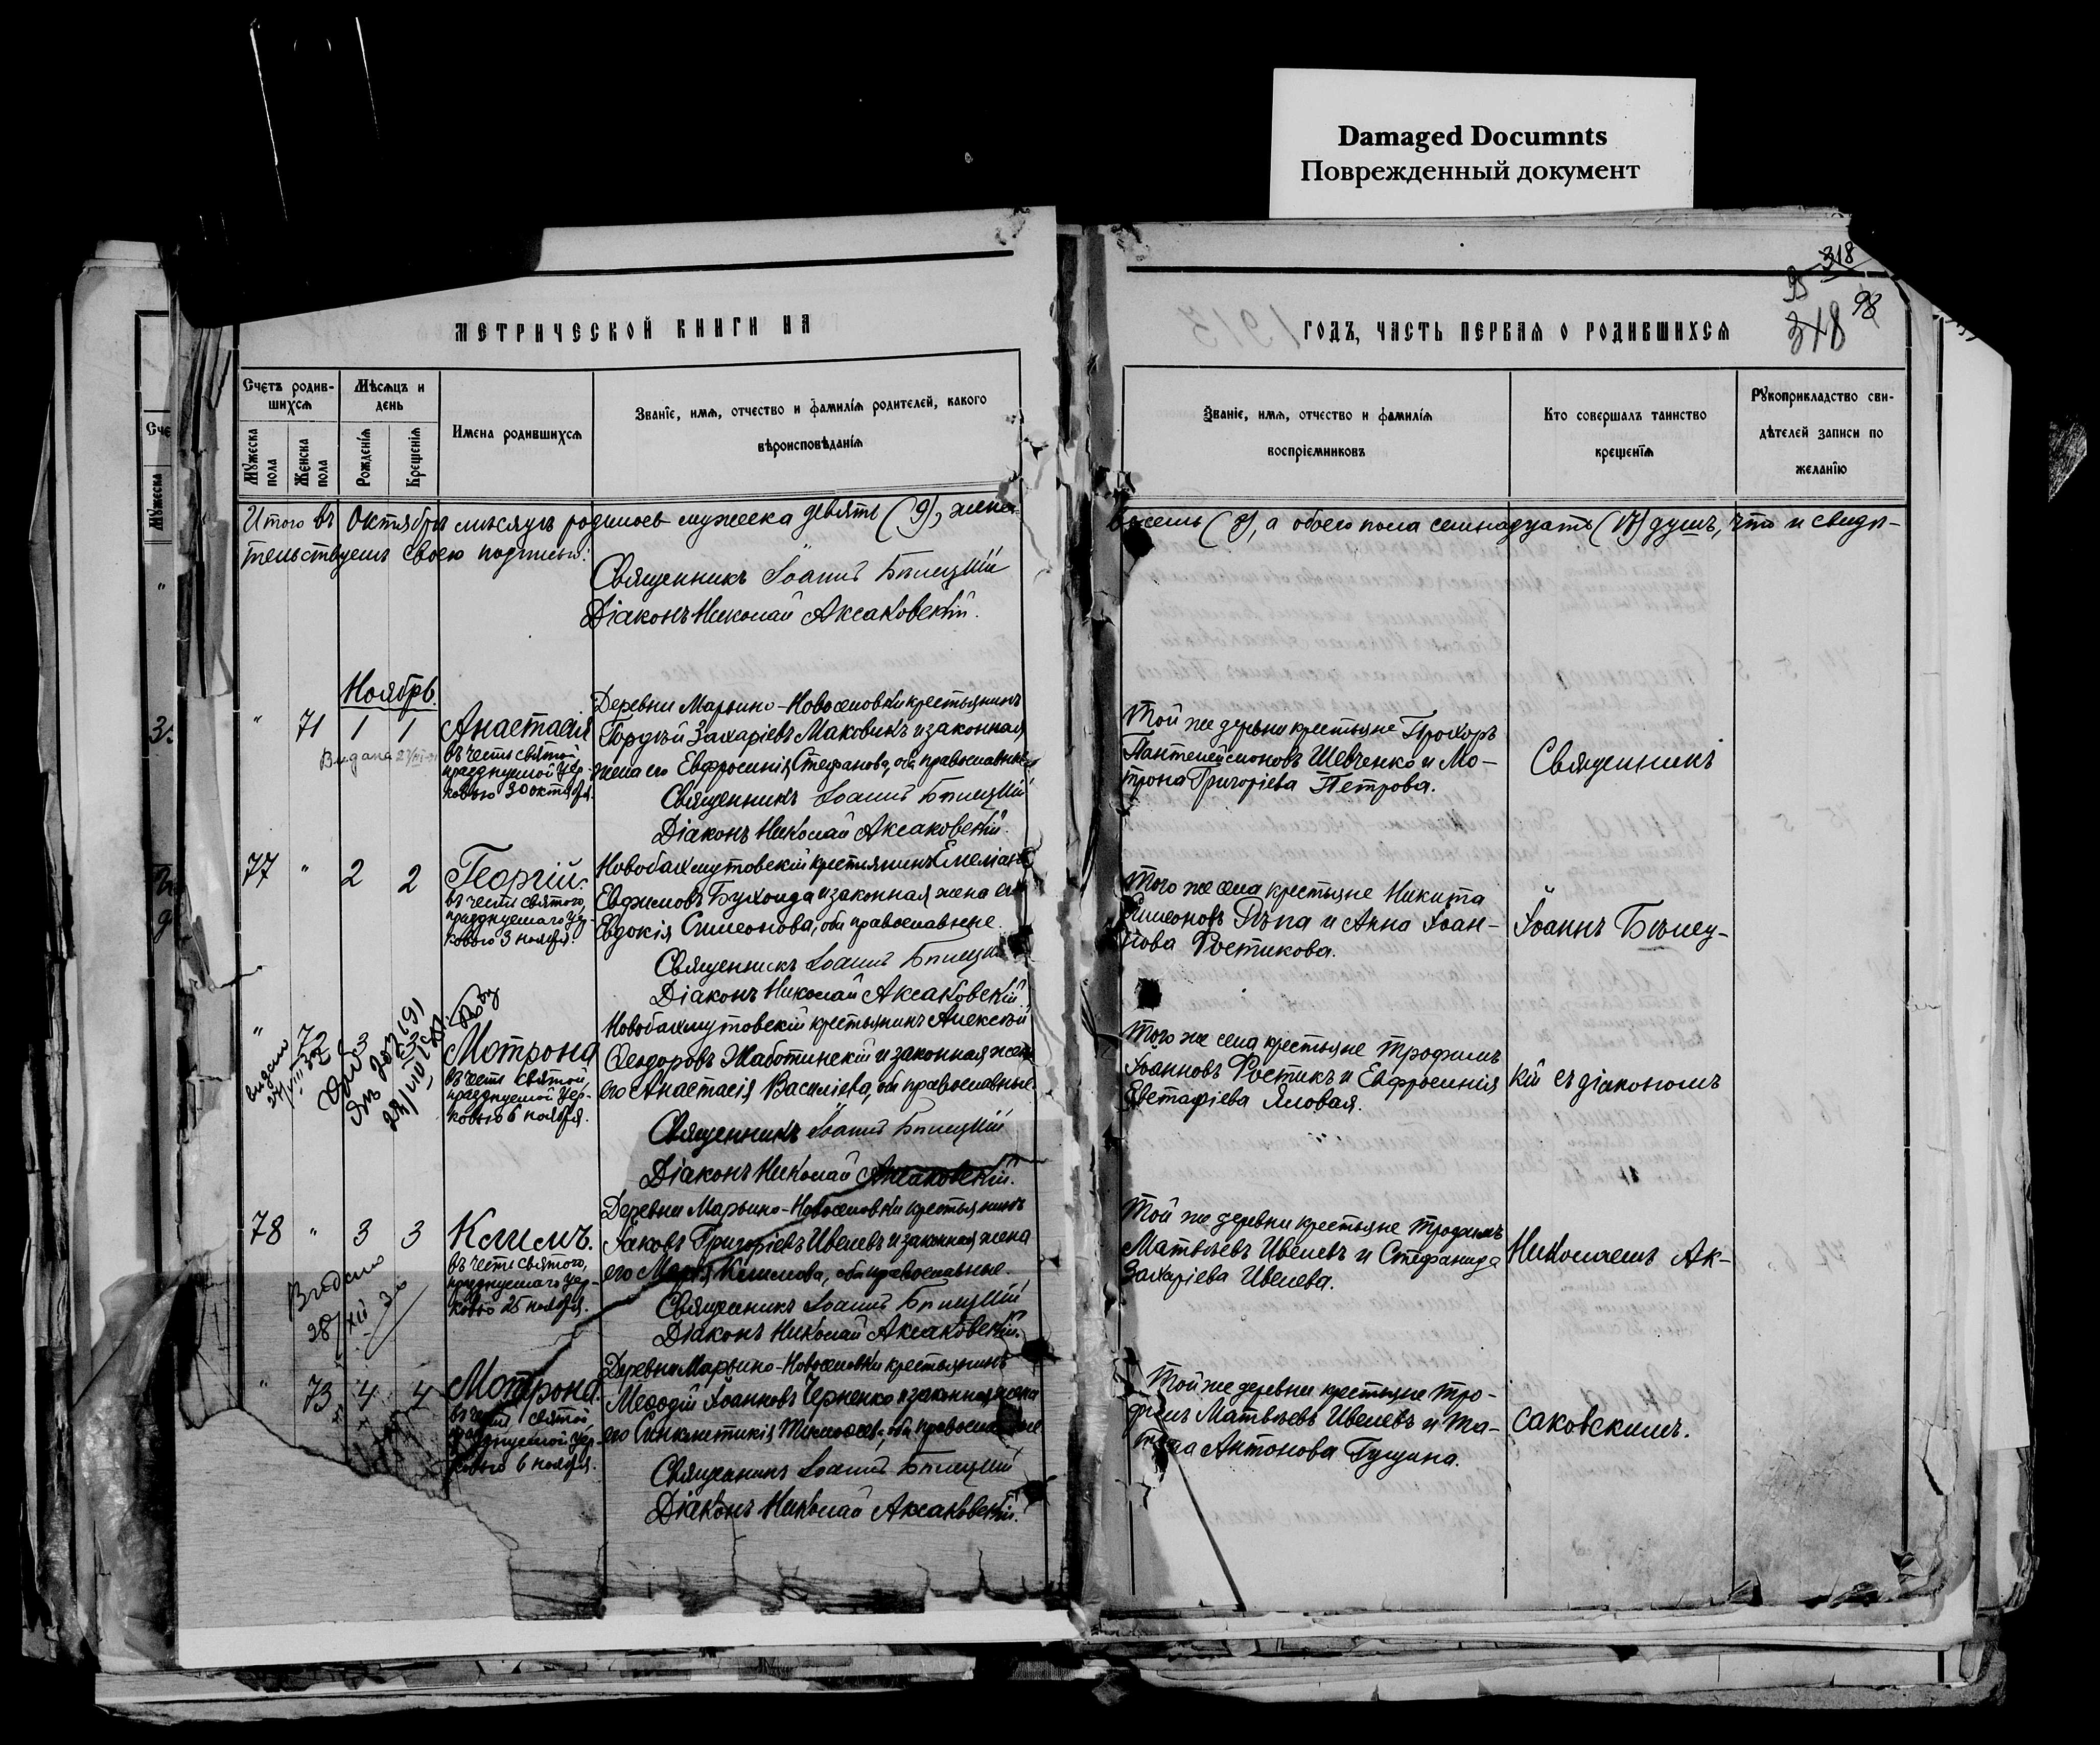 Damaged Documnts
Поврежденный документ
318
98
318
МЕТРИЧЕСКОЙ КНИГИ НА
Счетъ родив-
шихся
Мѣсяцъ и
день
Мужеска
пола
Женска
пола
Рожденія
Крещенія
Имена родившихся
Званіе, имя, отчество и фамилія родителей, какого
вѣроисповѣданія
Итого въ Октябрѣ мѣсяцѣ родилось мужеска девять (9), женска
тельствуемъ своею подписью:
Священникъ Іоаннъ Бѣлицкій
Діаконъ Николай Аксаковскій.
Ноябрь.
" 71 1 1
Анастасія
въ честь святой,
празднуемой цер-
ковью 30 октября.
Деревни Марьино-Новоселовки крестьянинъ
Гордѣй Захаріевъ Маковикъ и законная
жена его Евфросинія Стефанова, оба православные
Священникъ Іоаннъ Бѣлицкій
Діаконъ Николай Аксаковскій.
77 " 2 2
Георгій.
въ честь святого,
празднуемаго цер-
ковью 3 ноября.
Новобахмутовскій крестьянинъ Емеліанъ
Евфимовъ Бухонда и законная жена его
Евдокія Симеонова, оба православные.
Священникъ Іоаннъ Бѣлицкій
Діаконъ Николай Аксаковскій.
" 72 3 3
Мотрона
въ честь святой,
празднуемой цер-
ковью 6 ноября.
Новобахмутовскій крестьянинъ Алексѣй
Ѳеодоровъ Жаботинскій и законная жена
его Анастасія Васильева, оба православные.
Священникъ Іоаннъ Бѣлицкій
Діаконъ Николай Аксаковскій.
78 " 3 3
Видано
28/XII 30
Климъ.
въ честь святого,
празднуемаго цер-
ковью 25 ноября.
Деревни Марьино-Новоселовки крестьянинъ
Іаковъ Григоріевъ Ивелевъ и законная жена
его Марія Климова, оба православные.
Священникъ Іоаннъ Бѣлицкій
Діаконъ Николай Аксаковскій.
" 73 4 4
Мотрона
въ честь святой,
празднуемой цер-
ковью 6 ноября.
Деревни Марьино-Новоселовки крестьянинъ
Меѳодій Іоанновъ Черненко и законная жена
его Синклитикія оба православные
Священникъ Іоаннъ Бѣлицкій
Діаконъ Николай Аксаковскій.
ГОДЪ, ЧАСТЬ ПЕРВАЯ О РОДИВШИХСЯ
Званіе, имя, отчество и фамилія
воспріємниковъ
Кто совершалъ таинство
крещенія
Рукоприкладство сви-
дѣтелей записи по
желанію
восемь (8), а обоего пола семнадцать (17) душъ, что и свидѣ-
Той же деревни крестьяне Прохоръ
Пантелеймоновъ Шевченко и Мо-
трона Григоріева Петрова.
Того же села крестьяне Никита
Симеоновъ Рѣпа и Анна Іоан-
нова Ростикова.
Того же села крестьяне Трофимъ
Іоанновъ Ростикъ и Евфросинія
Евстафіева Яловая.
Той же деревни крестьяне Трофимъ
Матвѣевъ Ивелевъ и Стефанида
Захаріева Ивелева.
Той же деревни крестьяне Тро-
фимъ Матвѣевъ Ивелевъ и Та-
тіана Антонова Гущина.
Священникъ
Іоаннъ Бѣлиц-
кій съ діакономъ
Николаемъ Ак-
саковскимъ.